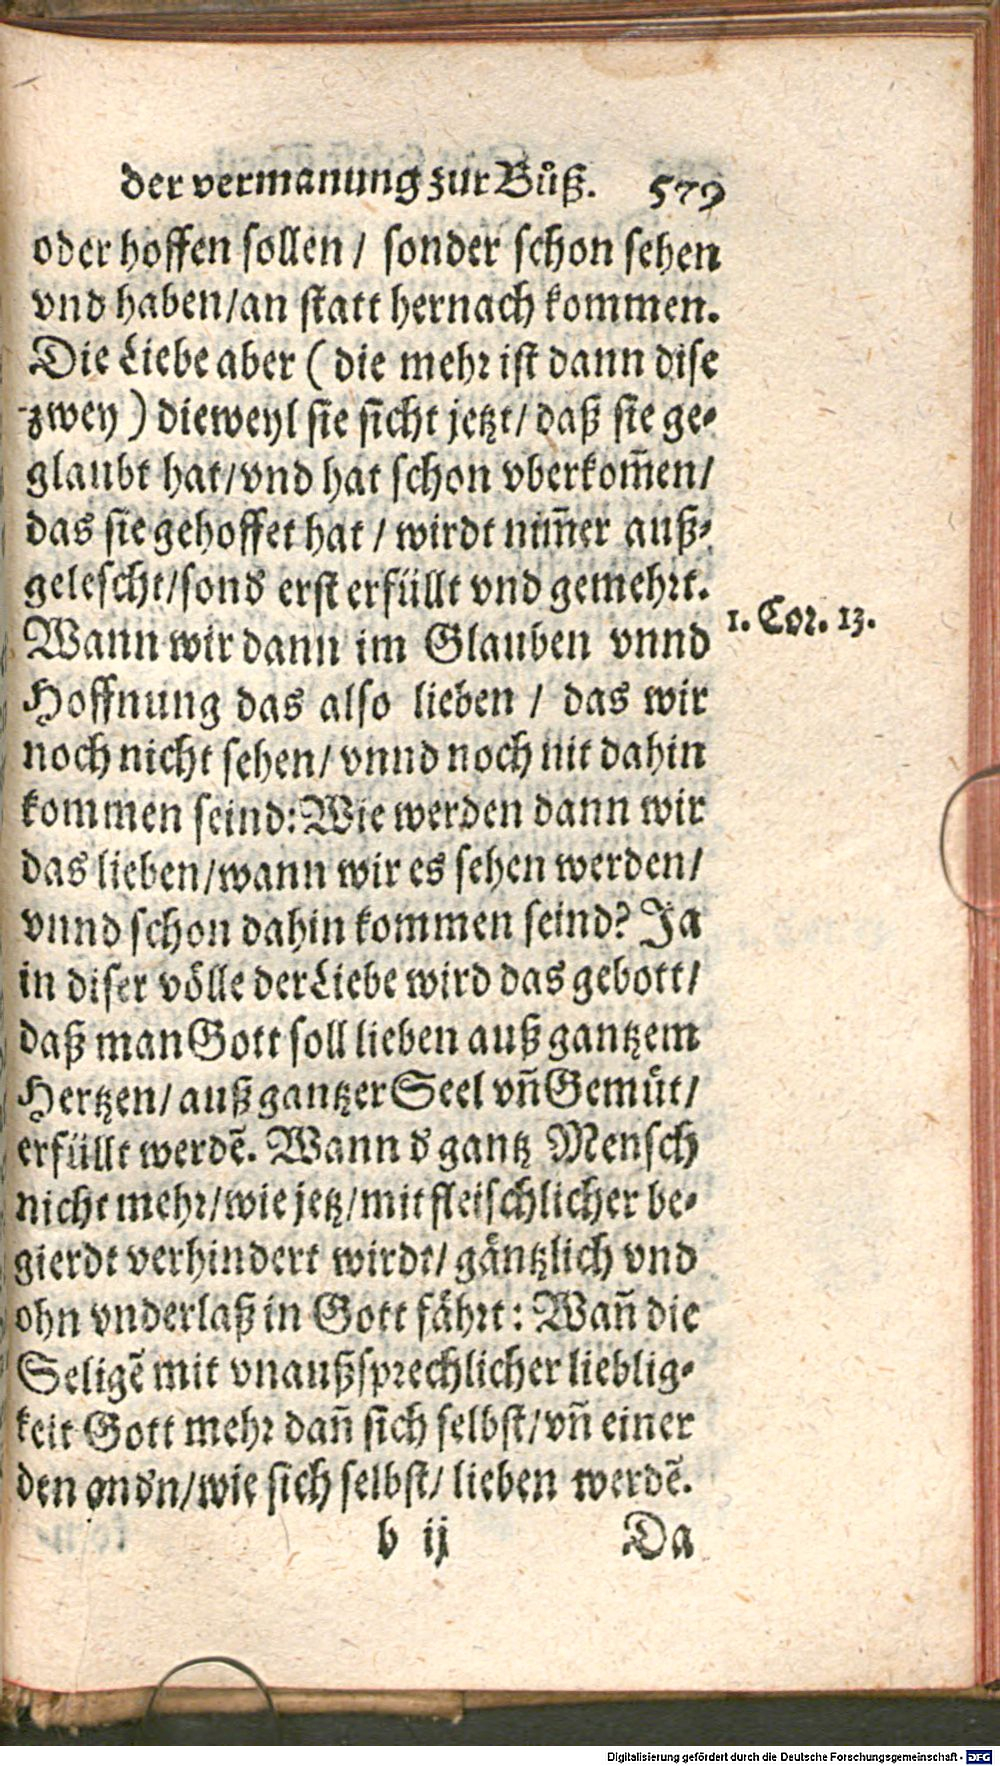 der vermanung zur Bůß. 579
oder hoffen sollen / sonder schon sehen
vnd haben/an statt hernach kommen.
Die Liebe aber ( die mehr ist dann dise
zwey ) dieweyl sie sicht jetzt/ daß sie ge-
glaubt hat/vnd hat schon vberkom̃en/
das sie gehoffet hat / wirdt nim̃er auß-
gelescht/sond erst erfüllt vnd gemehrt.
Wann wir dann im Glauben vnnd
1. Cor. 13.
Hoffnung das also lieben / das wir
noch nicht sehen/ vnnd noch nit dahin
kommen seind: Wie werden dann wir
das lieben/wann wir es sehen werden/
vnnd schon dahin kommen seind? Ja
in diser völle der Liebe wird das gebott/
daß man Gott soll lieben auß gantzem
Hertzen/ auß gantzer Seel vn̄ Gemüt/
erfüllt werdē. Wann d gantz Mensch
nicht mehr/wie jetz/mit fleischlicher be-
gierdt verhindert wirdt/ gäntzlich vnd
ohn vnderlaß in Gott fährt: Wan̄ die
Seligē mit vnaußsprechlicher lieblig-
keit Gott mehr dan̄ sich selbst/ vn̄ einer
den andn/wie sich selbst/ lieben werdē.
b ij Da
Digitalisierung gefördert durch die Deutsche Forschungsgemeinschaft - DFG